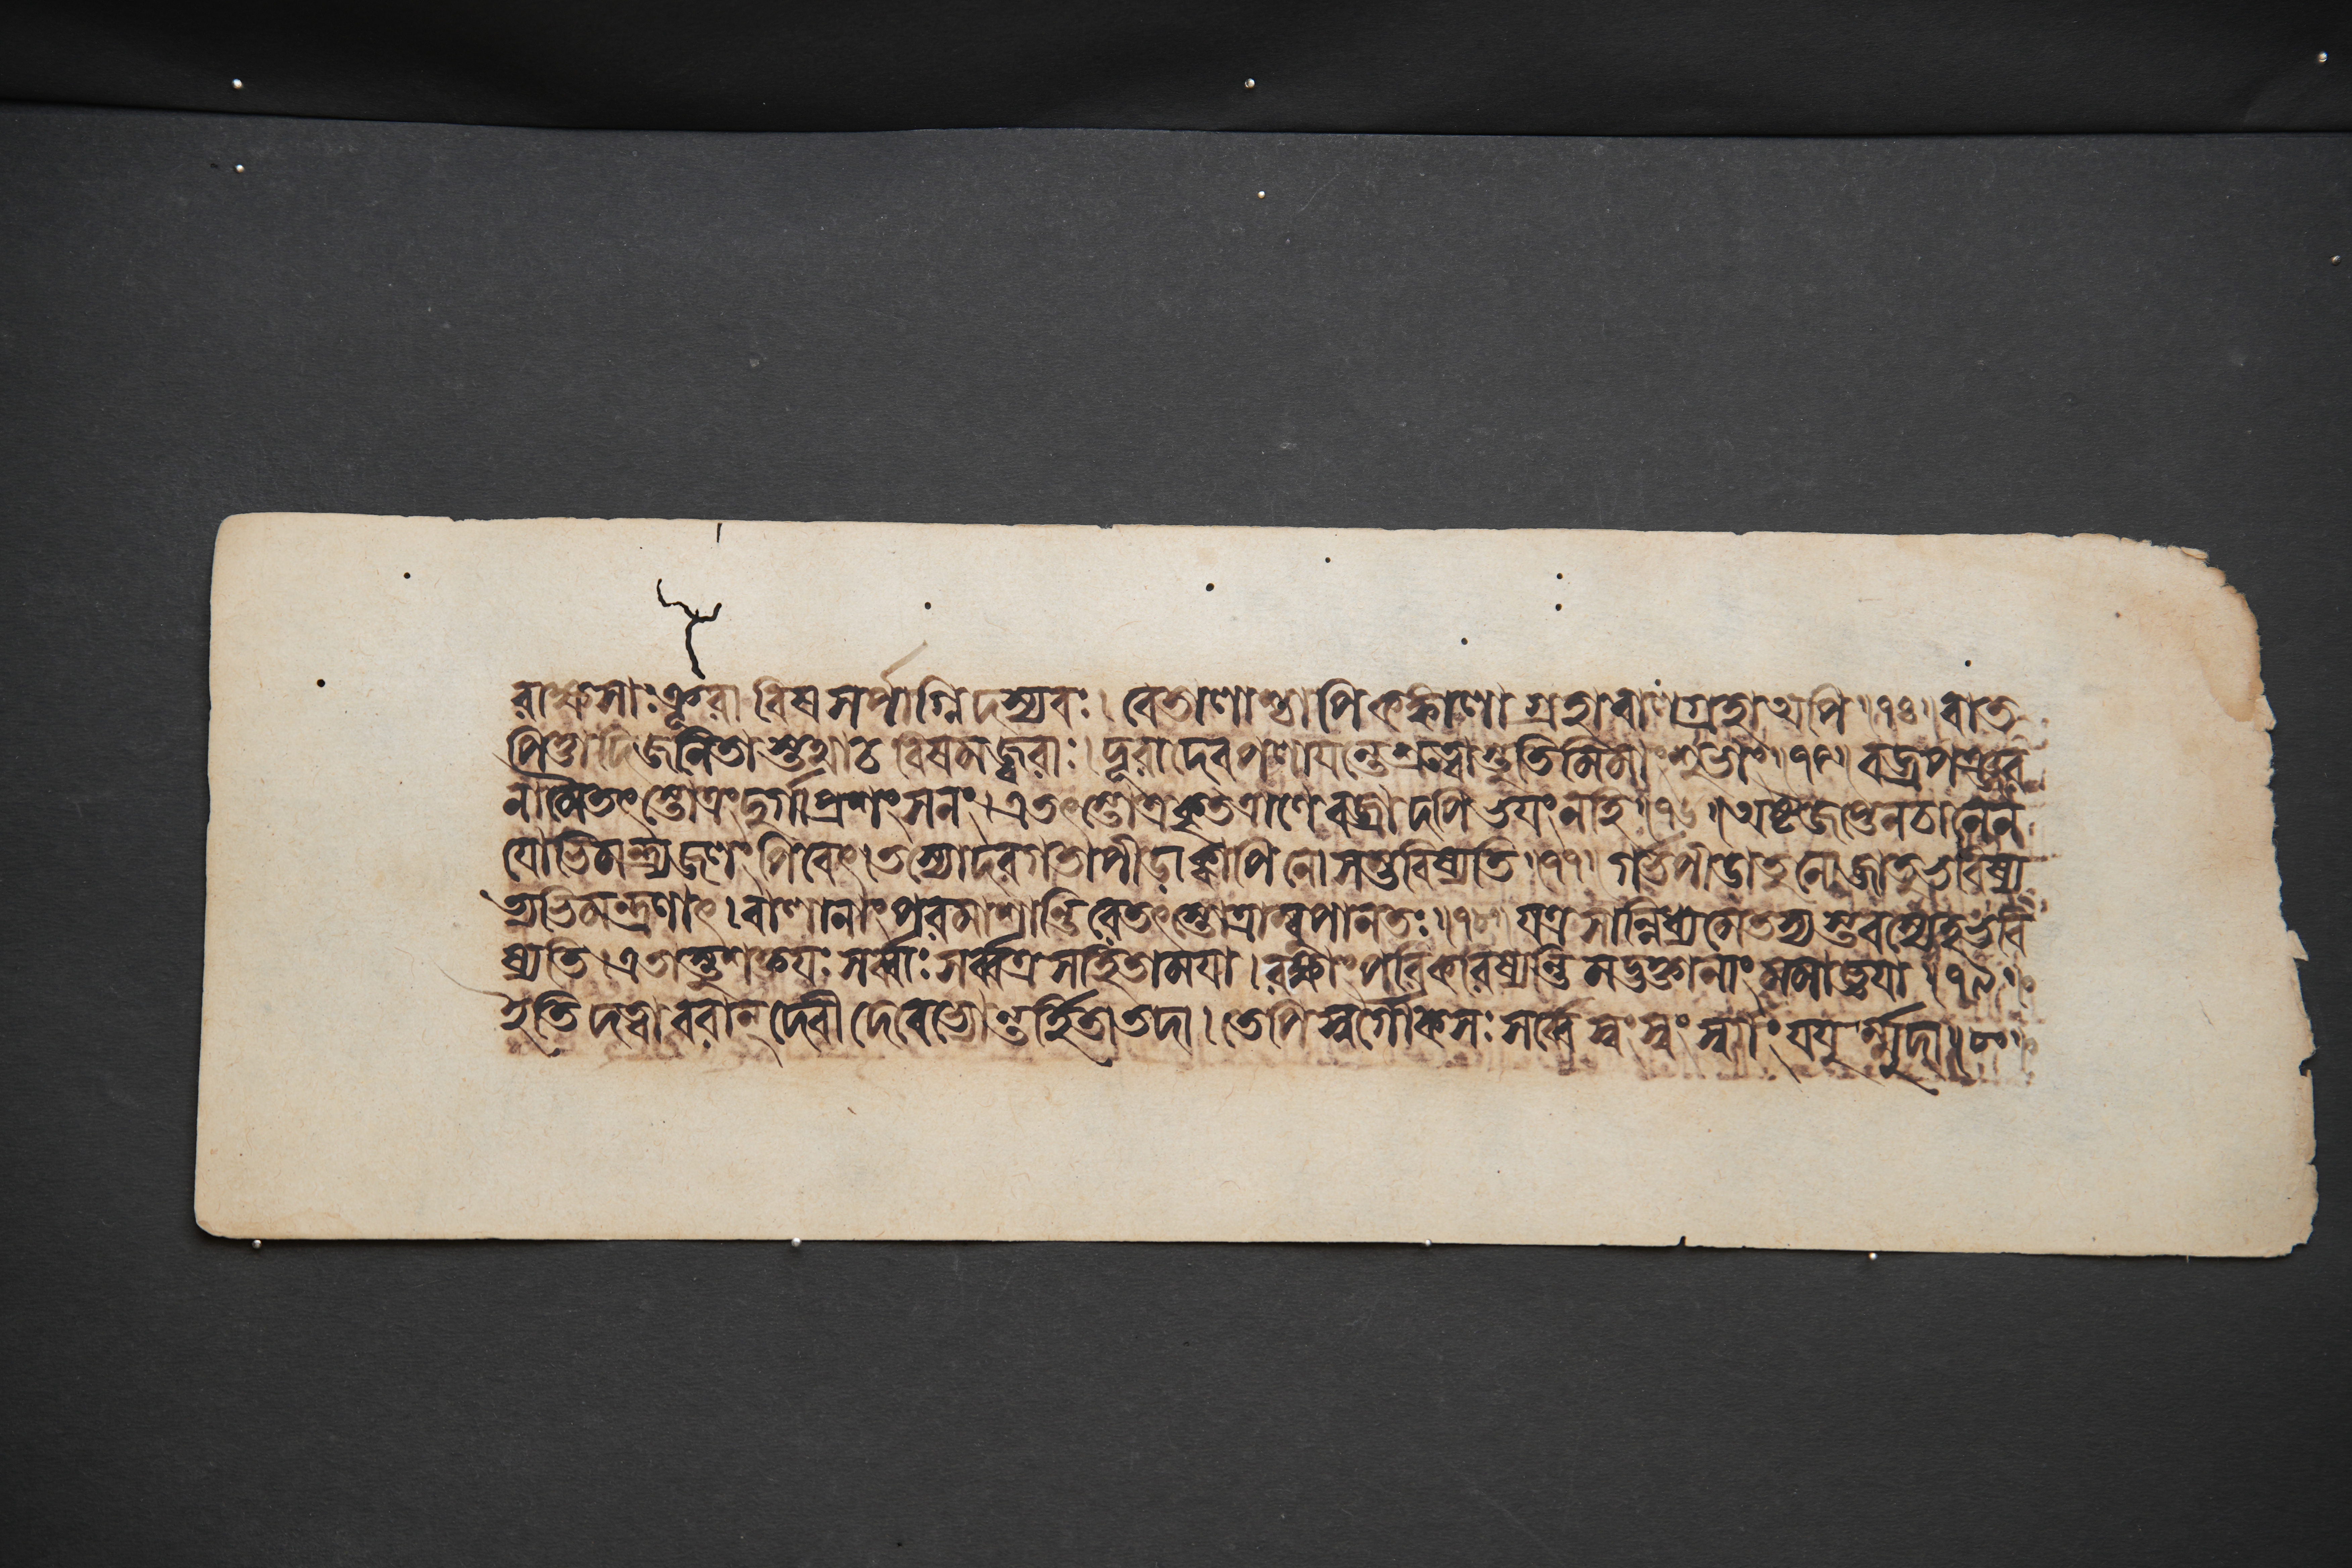 রাক্ষসাঃক্রূরা বিষসর্পাগ্নিদস্যবঃ। বেতালাশ্চাপি কঙ্কালা গ্রহাবালগ্রহাঅপি॥৭৪॥বাত
পিত্তাদিজনিতাস্তথাচ বিষমজ্বরাঃ। দূরাদেবপলাযন্তেশ্রুত্বাস্তুতিমিমাংশুভাং॥৭৫॥বজ্রপঞ্জর
নামৈতৎস্তোত্রংদুর্গাপ্রশংসনং।এতৎস্তোত্রকৃতত্রাণে বজ্রাদপিভযংনহি॥৭৬॥অষ্টজপ্তেনচানেন
যোভিমন্ত্র্যজলং পিবেৎ।তস্যোদরগতাপীডাক্বাপিনোসম্ভবিষ্যতি॥৭৭॥গর্ভপীডাতুনোজাতুভবিষ্য
ত্যভিমন্ত্রণাৎ।বালানাংপরমাশান্তিরেতৎস্তোত্রাম্বুপানতঃ॥৭৮॥যত্র সান্নিধ্যমেতস্যস্তবস্যেহভবি
ষ্যতি।এতাস্তুশক্তযঃসর্ব্বাঃসর্ব্বত্রসহিতামযা।রক্ষাংপরিকরিষ্যন্তিমদ্ভক্তানাংমমাজ্ঞযা॥৭৯॥
ইতিদত্ত্বাবরান্দেবীদেবেভ্যোন্তর্হিতাতদা।তেপিস্বর্গৌকসঃসর্ব্বেস্বংস্বংস্বর্গংযযুর্ম্মুদা॥৮০॥